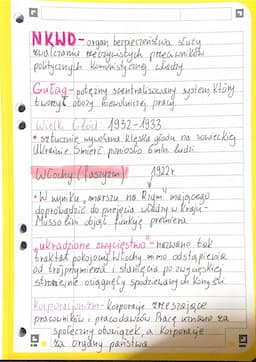 NKWD - organ bezpieczeństwa służy
zwalczaniu rzeczywistych przeciwników
politycznych komunistycznej władzy
Gułag - potężny scentralizowany system, który
tworzył obozy niewolniczej pracy
Wielki Głód 1932-1933
• sztucznie wywołana klęska głodu na sowieckiej
Ukrainie. Śmierć poniosło 6 mln ludzi
Włochy (faszyzm) 1922r.
• W wyniku "marszu na Rzym" mającego
doprowadzić do przejęcia władzy w kraju -
Mussolini objął funkcję premiera
"ukradzione zwycięstwo" - nazwano tak
traktat pokojowy. Włochy mimo odstąpienia
od trójprzymierza i stanięcia po zwycięskiej
stronie nie osiągnęły spodziewanych korzyści.
Korporacjonizm - Korporacje zrzeszające
pracowników i pracodawców. Pracę uznano za
społeczny obowiązek, a Korporacje
za organy państwa.